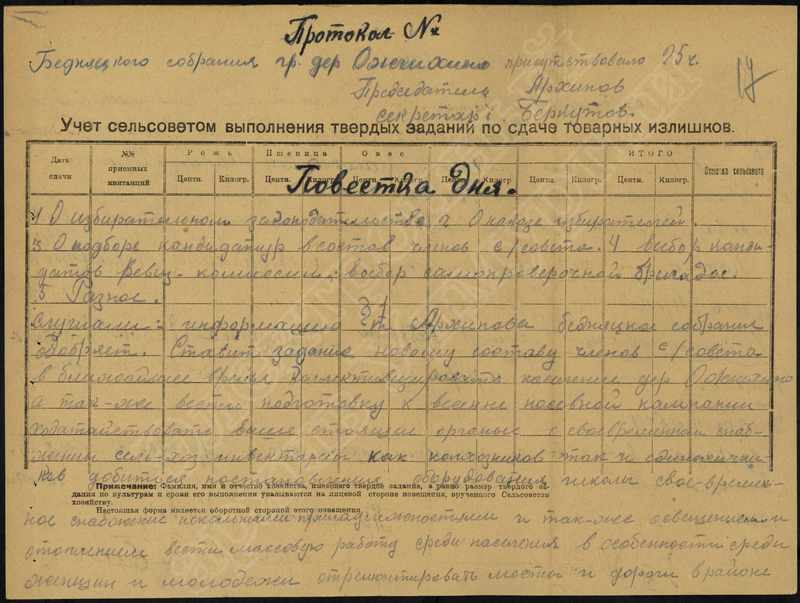 Протокол №
Бедняцкого собрания гр. дер Ожгихино присутствовало 25 ч.
17
Председатель Архипов
секретарь Беркутов.
Учет сельсоветом выполнения твердых заданий по сдаче товарных излишков.
Дата сдачи №№ приемных квитанций Рожь Пшеница Овес ИТОГО Отметка сельсовета
Центн. Килогр. Центн. Килогр. Центн. Килогр. Центн. Килогр. Центн. Килогр. Центн. Килогр.
Повестка дня.
1 О избирательном законодательстве 2 О наказе избирателей.
3. О подборе кандидатур в состав членов с/совета. 4 выбор канди-
датов Ревиз. комиссии, выбор самопроверочной бригады.
5 Разное.
Слушали: информацию т. Архипова бедняцкое собрания
одобряет. Ставит задание новому составу членов с/совета
в ближайшее время коллективизировать население дер Ожгихино
а так-же вести подготовку к весенне посевной кампании
ходатайствовать выше стоящим органы с своевременной снаб-
жении сель-хоз инвентарем как колхозников так и единолични-
ков добиться постановления оборудования школы свое-времен-
Примечание: Фамилия, имя и отчество хозяйства, имеющего твердое задание, а равно размер твердого за-
дания по культурам и сроки его выполнения указываются на лицевой стороне извещения, врученного Сельсоветом
хозяйству.
Настоящая форма имеется оборотной стороной этого извещения.
ное снабжение школьными принадлежностями и так-же освещением и
отоплением вести массовую работу среди населения в особенности среди
женщин и молодежи отремонтировать мосты и дороги в районе